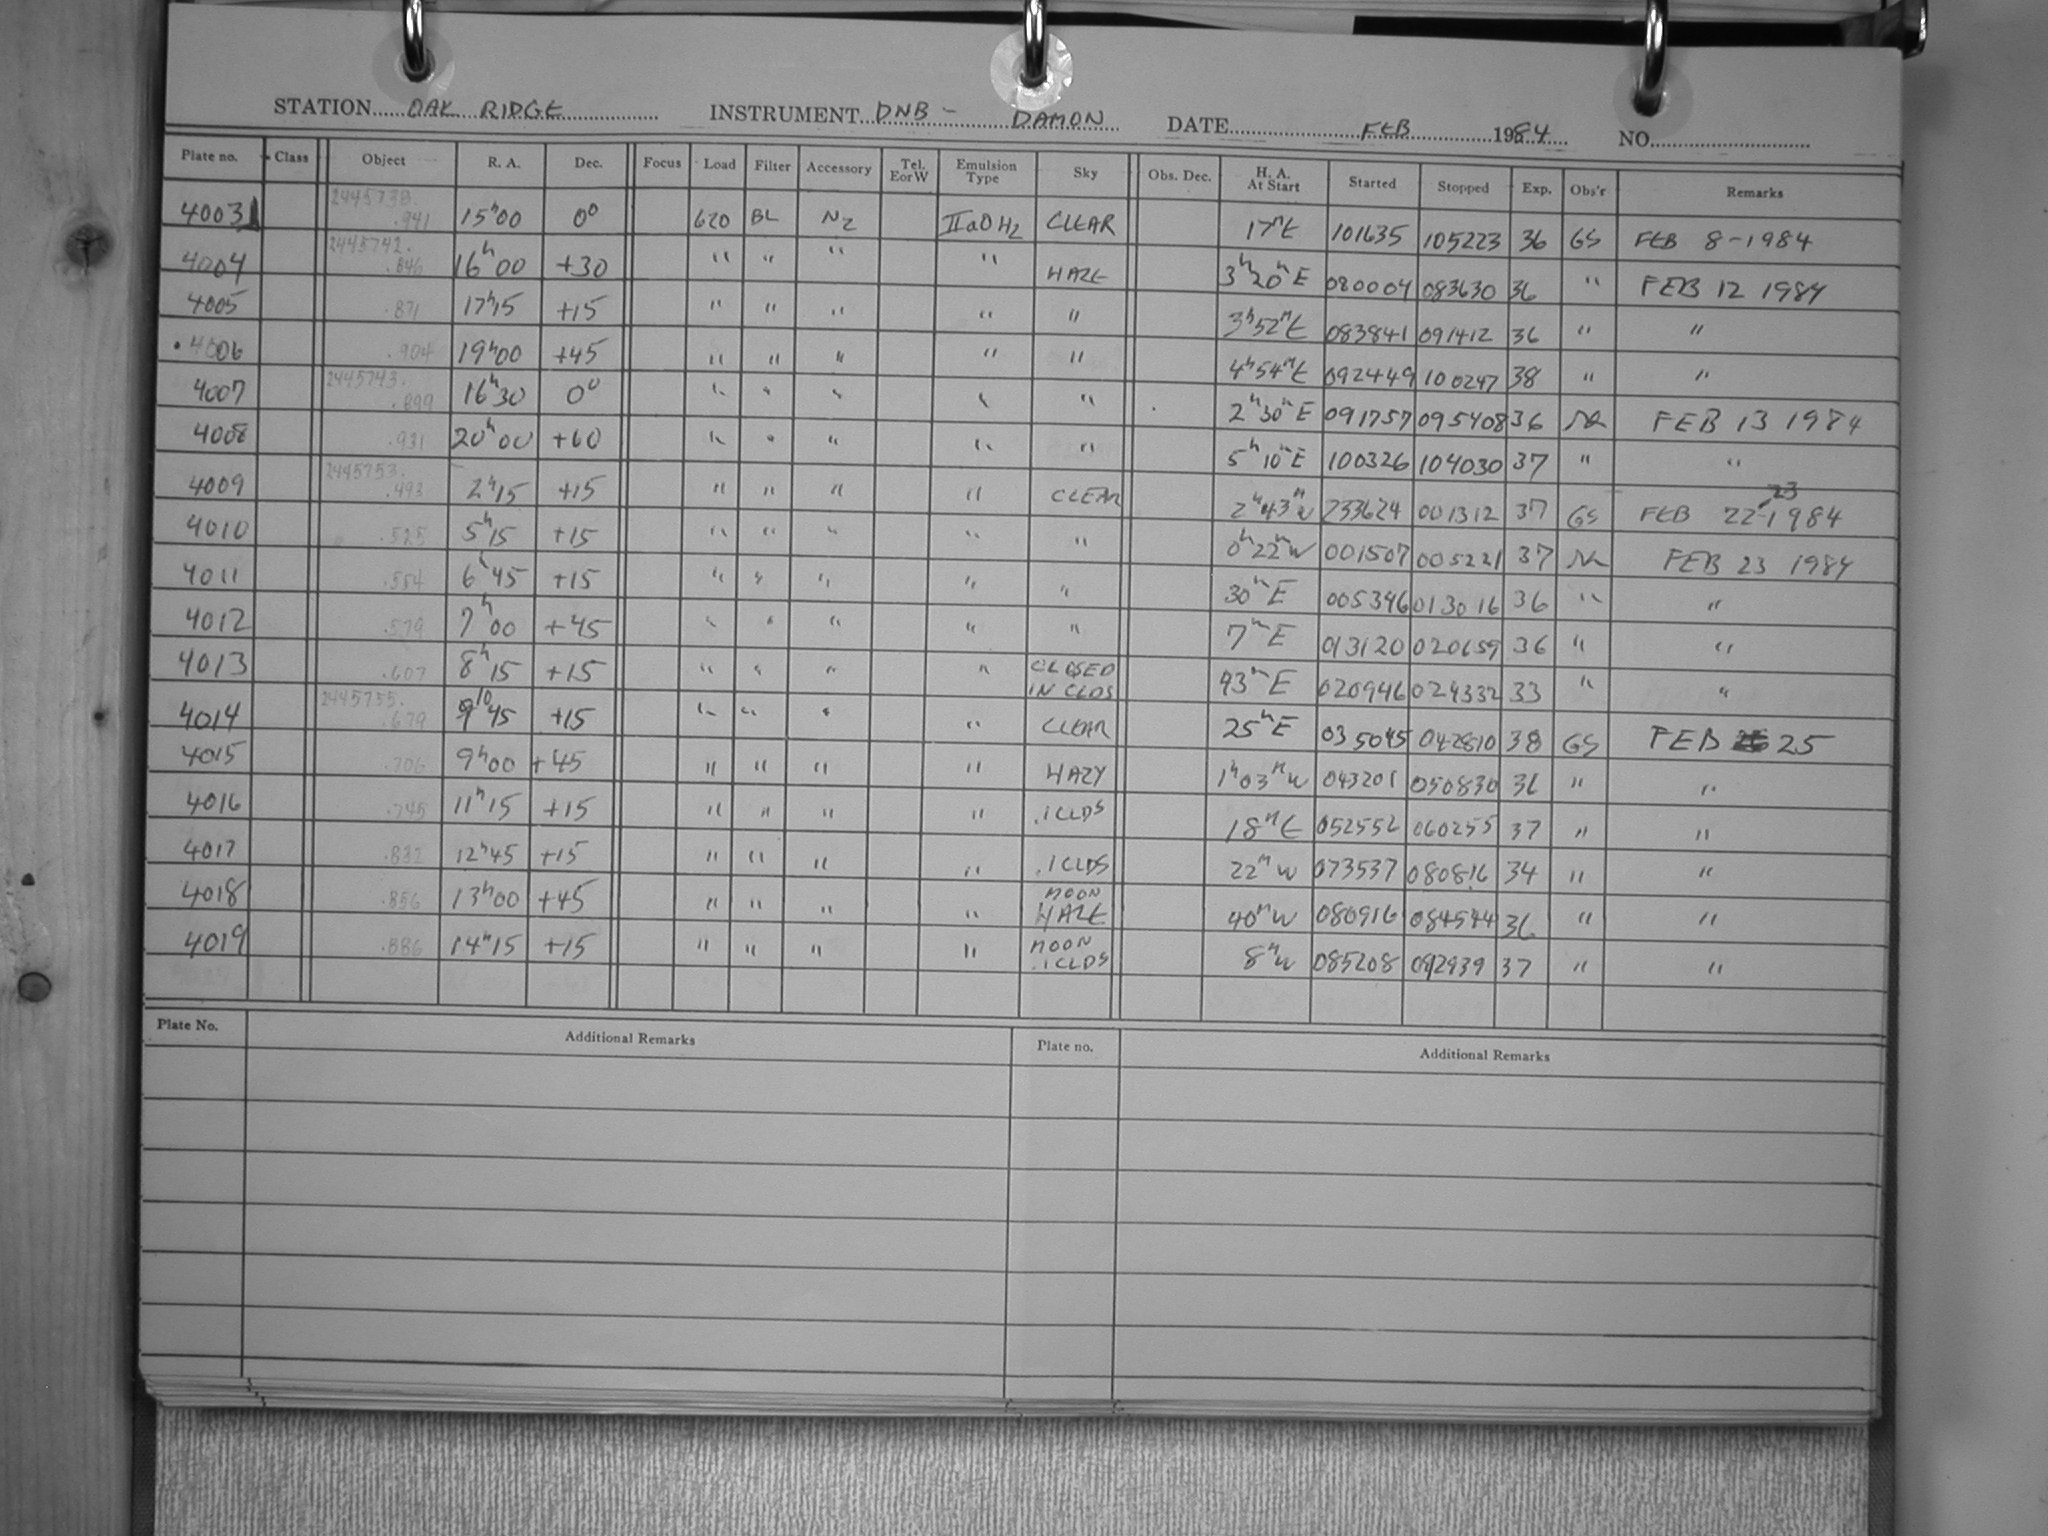 STATION OAK RIDGE INSTRUMENT DNB - DAMON DATE FEB 1984 NO.
Plate no. Class Object R. A. Dec. Focus Load Filter Accessory Tel. E or W Emulsion Type Sky Obs. Dec. H. A. At Start Started Stopped Exp. Obs'r Remarks
4003 2445738. .941 15h00 0° 620 BL N2 IIaOH2 CLEAR 17mE 101635 105223 36 GS FEB 8-1984
4004 2445742. .846 16h00 +30 " " " " HAZE 3h20mE 080004 083630 36 " FEB 12 1984
4005 .871 17h15 +15 " " " " " 3h52mE 083841 091412 36 " "
4006 .904 19h00 +45 " " " " " 4h54mE 092449 100247 38 " "
4007 2445743. .899 16h30 0° " " " " " 2h30mE 091757 095408 36 FEB 13 1984
4008 .931 20h00 +60 " " " " " 5h10mE 100326 104030 37 " "
4009 2445753. .493 2h15 +15 " " " " CLEAR 2h43mW 233624 001312 37 GS FEB 22-23 1984
4010 .525 5h15 +15 " " " " " 0h22mW 001507 005221 37 FEB 23 1984
4011 .554 6h45 +15 " " " " " 30mE 005346 013016 36 " "
4012 .579 7h00 +45 " " " " " 7mE 013120 020659 36 " "
4013 .607 8h15 +15 " " " " CLOSED IN CLDS 43mE 020946 024332 33 " "
4014 2445755. .679 10h45 +15 " " " " CLEAR 25mE 035045 042810 38 GS FEB 25
4015 .706 9h00 +45 " " " " HAZY 1h03mW 043201 050830 36 " "
4016 .745 11h15 +15 " " " " .1CLDS 18mE 052552 060255 37 " "
4017 .832 12h45 +15 " " " " .1CLDS 22mW 073537 080816 34 " "
4018 .856 13h00 +45 " " " " MOON HAZE 40mW 080916 084544 36 " "
4019 .886 14h15 +15 " " " " MOON .1CLDS 8mW 085208 092939 37 " "
Plate No. Additional Remarks Plate no. Additional Remarks